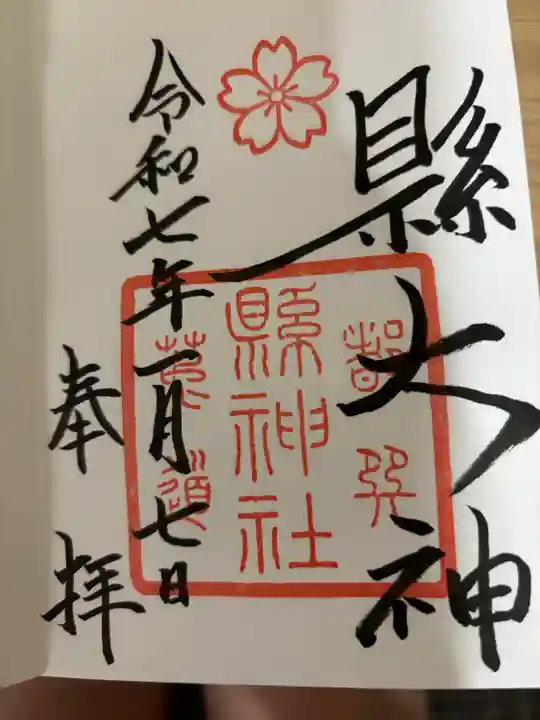 縣大神
都巽
縣神社
莵道
令和七年一月七日
奉拝